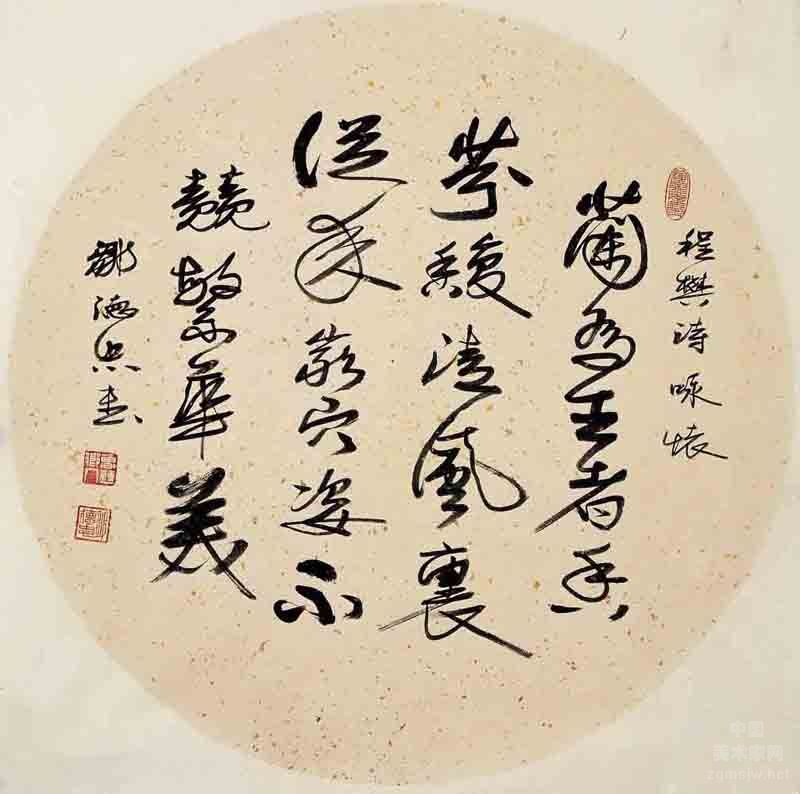 程樊詩咏懷
蘭為王者香
芬馥清風裏
從来巖穴姿不
競繁華美
書
中国
美术家网
zgmsjw.net